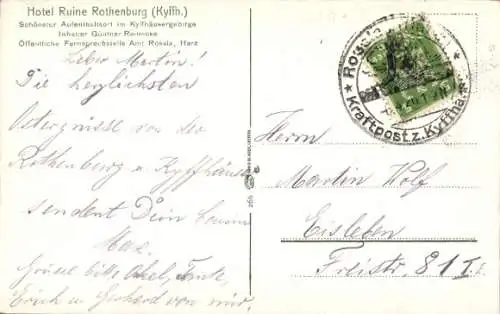 Hotel Ruine Rothenburg (Kyffh.)
Schönster Aufenthaltsort im Kyffhäusergebirge
Inhaber Günther Reinicke
Öffentliche Fernsprechstelle Amt Rossla, Harz
Lieber Martin!
Die herzlichsten
Ostergrüsse von der
Rothenburg u. Kyffhäuser
sendent Dein
Max.
Grüsse bitte Tante,
Erich u. Gerhard von mir.
Herrn
Martin Wolf
Eisleben
Freistr. 81 I.
Kraftpost z. Kyffh.
268